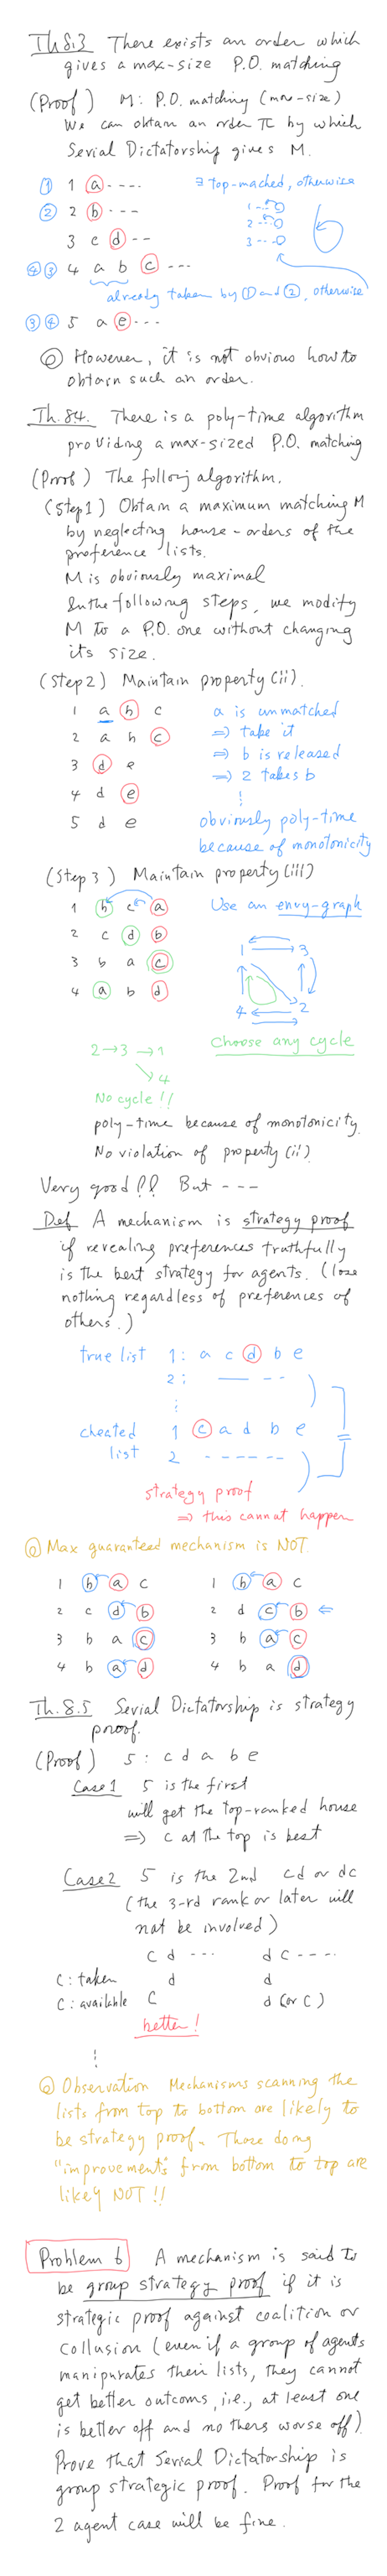 Th 8.3 There exists an order which
gives a max-size P.O. matching
(Proof) M: P.O. matching (max-size)
We can obtain an order π by which
Serial Dictatorship gives M.
① 1 a ---- ∃ top-mached, otherwise
② 2 b --- 1 --
3 c d -- 2 --
④③ 4 a b c --- 3 --
already taken by ① and ②, otherwise
③④ 5 a e ---
◎ However, it is not obvious how to
obtain such an order.
Th. 8.4. There is a poly-time algorithm
providing a max-sized P.O. matching
(Proof) The folloing algorithm.
(Step1) Obtain a maximum matching M
by neglecting house-orders of the
preference lists.
M is obviously maximal
In the following steps, we modify
M to a P.O. one without changing
its size.
(Step2) Maintain property (ii).
1 a b c a is unmatched
2 a b c ⇒ take it
3 d e ⇒ b is released
4 d e ⇒ 2 takes b
5 d e obviously poly-time
because of monotonicity
(Step 3) Maintain property (iii)
1 b c a Use an envy-graph
2 c d b 1 3
3 b a c
4 a b d 4 2
2 → 3 → 1 Choose any cycle
4
No cycle!!
poly-time because of monotonicity.
No violation of property (ii)
Very good!! But ---
Def A mechanism is strategy proof
if revealing preferences truthfully
is the best strategy for agents. (lose
nothing regardless of preferences of
others.)
true list 1: a c d b e
2: --- -- 
cheated 1 c a d b e
list 2 ------
strategy proof
⇒ this cannat happen
◎ Max guaranteed mechanism is NOT
1 b a c 1 b a c
2 c d b 2 d c b ⇐
3 b a c 3 b a c
4 b a d 4 b a d
Th. 8.5 Serial Dictatorship is strategy
proof.
(Proof) 5: c d a b e
Case1 5 is the first
will get the top-ranked house
⇒ c at the top is best
Case2 5 is the 2nd cd or dc
(the 3-rd rank or later will
not be involved)
c d --- d c ----
c: taken d d
c: available c d (or c)
better!
◎ Observation Mechanisms scanning the
lists from top to bottom are likely to
be strategy proof. Those doing
"improvements" from bottom to top are
likely NOT!!
Problem 6 A mechanism is said to
be group strategy proof if it is
strategic proof against coalition or
collusion (even if a group of agents
manipurates their lists, they cannot
get better outcoms, i.e., at least one
is better off and no thers worse off).
Prove that Serial Dictatorship is
group strategic proof. Proof for the
2 agent case will be fine.